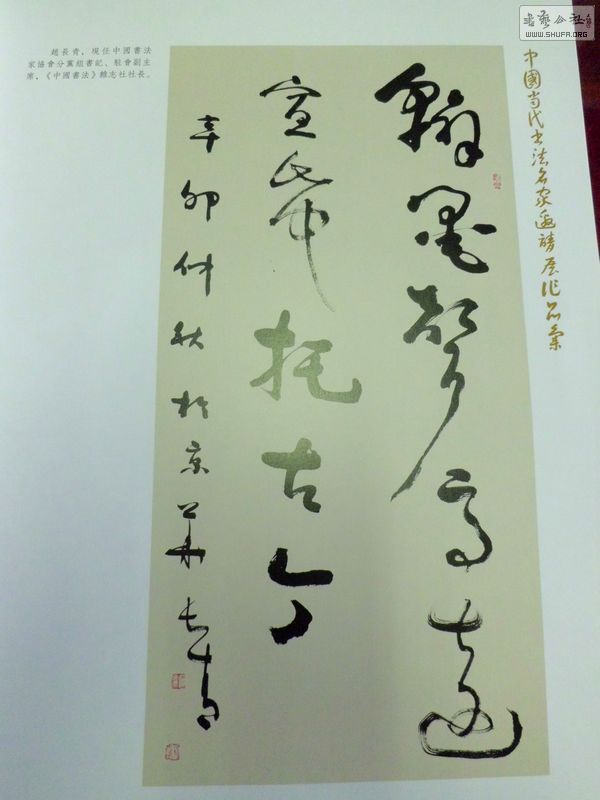 書藝公社
WWW.SHUFA.ORG
趙長青,現任中國書法
家協會分黨組書記、駐會副主
席,《中國書法》雜志社社長。
中國当代书法名家邀請展作品集
翰墨聲高遠
宣帋托古今
辛卯仲秋於京華長青